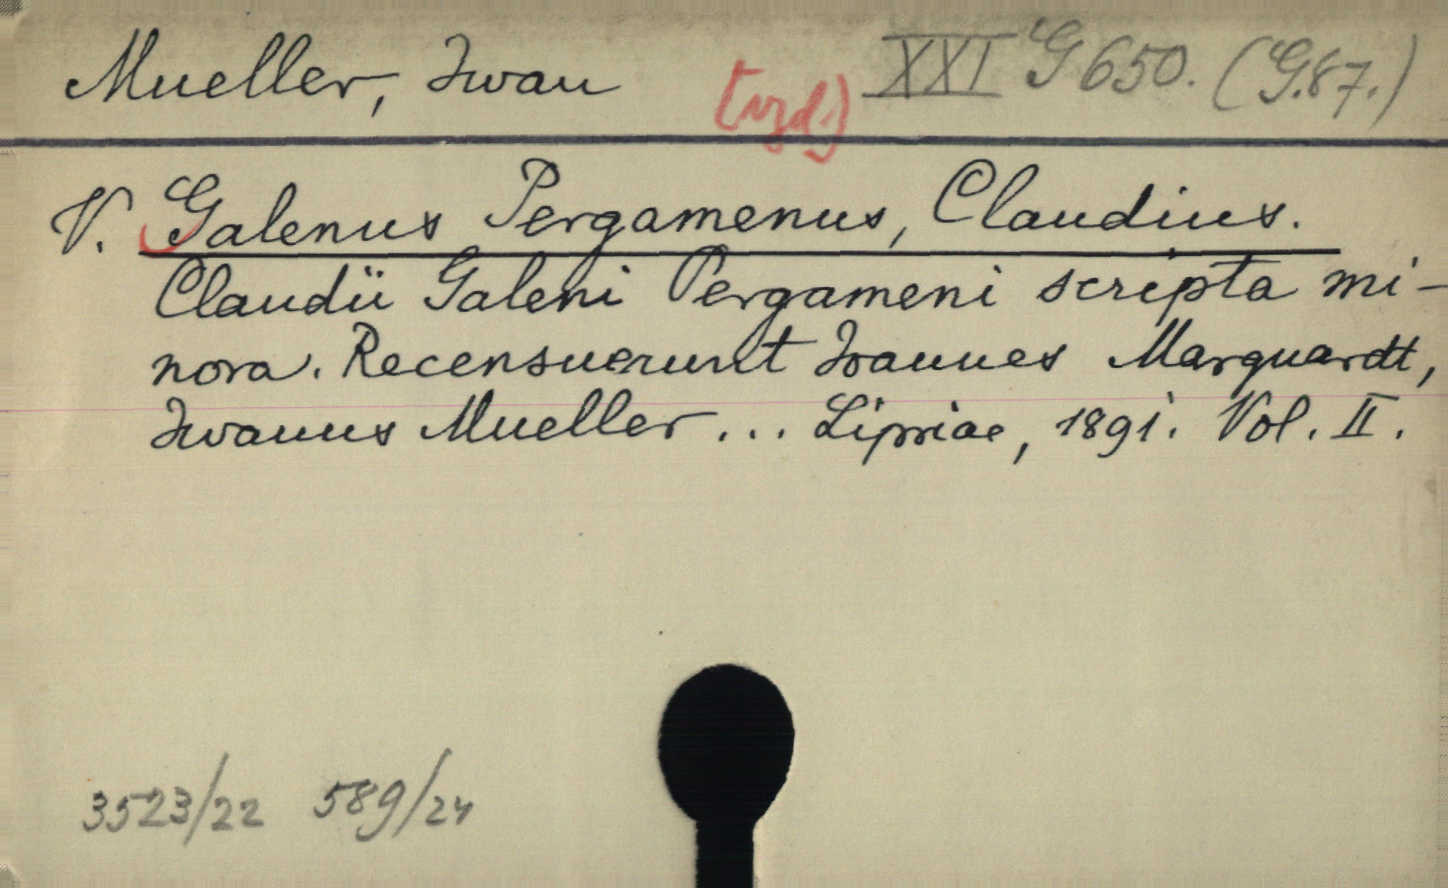 Mueller, Iwan [wyd.] XXI G 650. (G.87.)
V. Galenus Pergamenus, Claudius.
Claudii Galeni Pergameni scripta mi-
nora. Recensuerunt Ioannes Marquardt,
Iwanus Mueller... Lipsiae, 1891. Vol. II.
3523/22 589/24